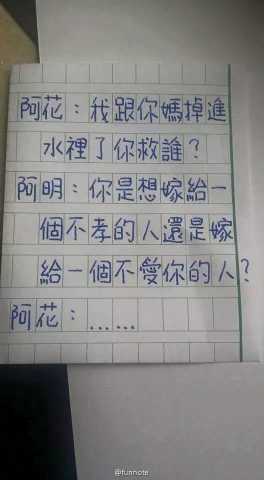 阿花：我跟你媽掉進
水裡了你救誰？
阿明：你是想嫁給一
個不孝的人還是嫁
給一個不愛你的人？
阿花：……
@funnote